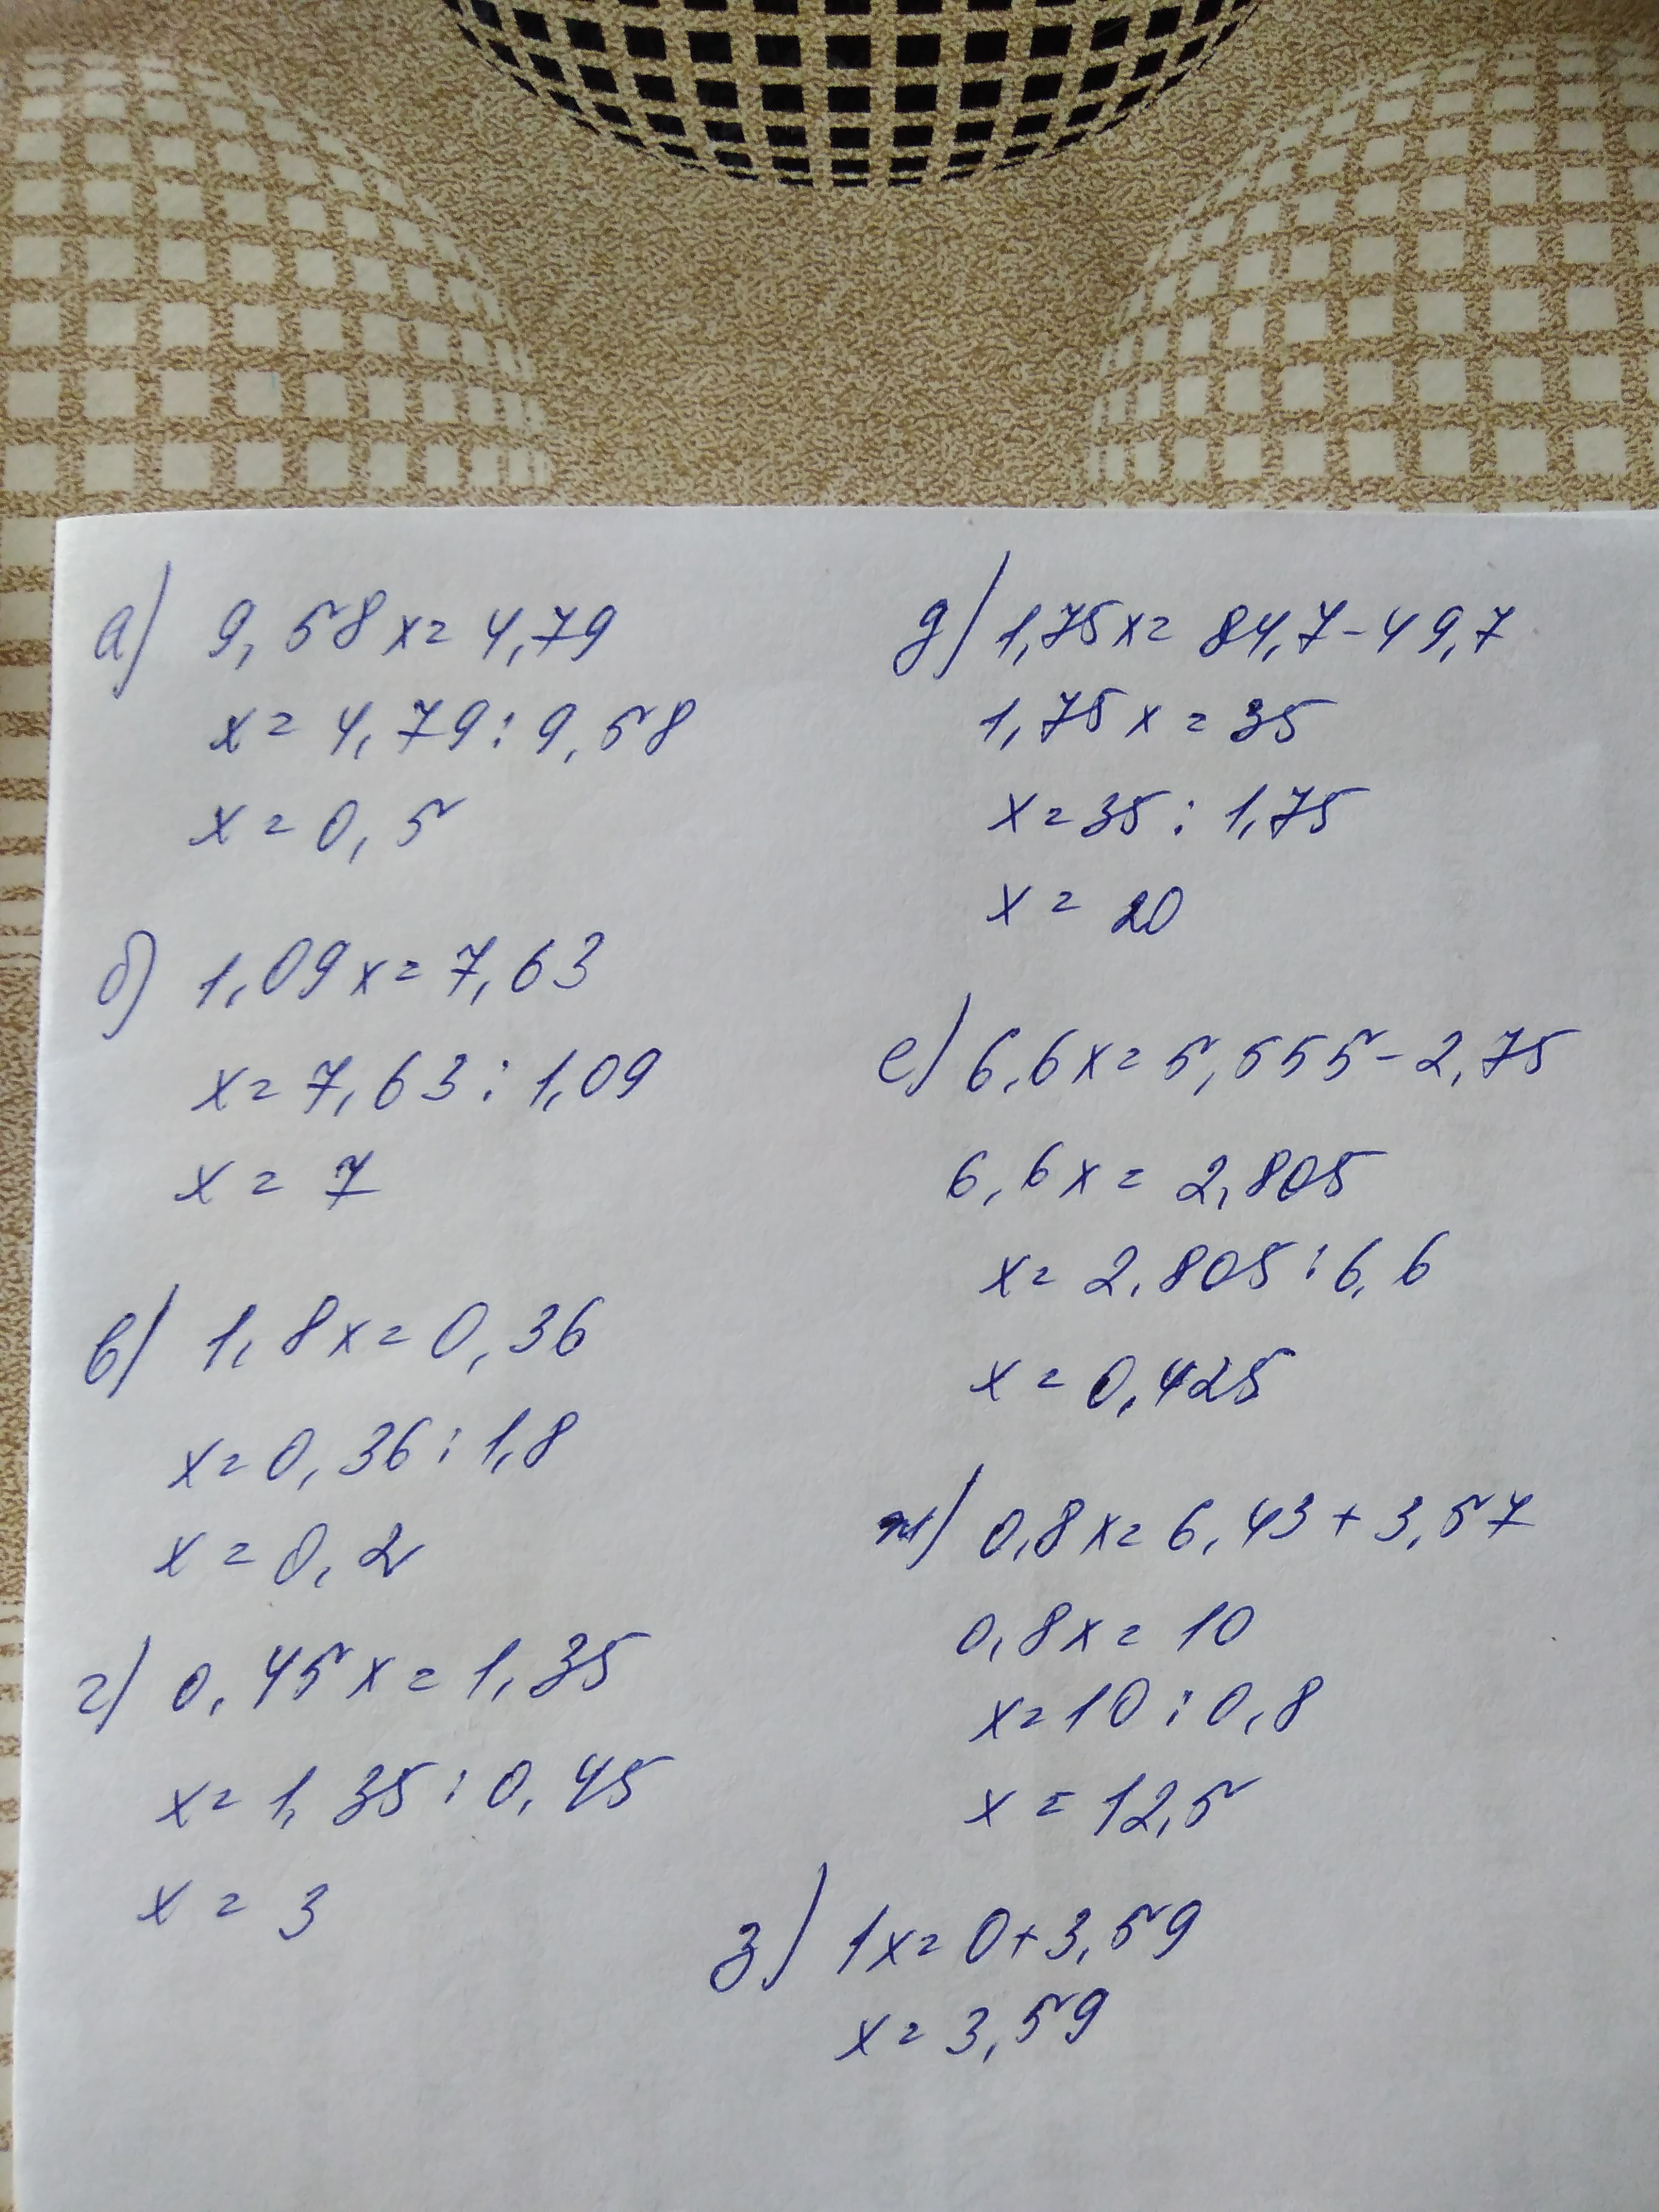 а) 9,58x=4,79
x=4,79:9,58
x=0,5
б) 1,09x=7,63
x=7,63:1,09
x=7
в) 1,8x=0,36
x=0,36:1,8
x=0,2
г) 0,45x=1,35
x=1,35:0,45
x=3
д) 1,75x=84,7-49,7
1,75x=35
x=35:1,75
x=20
е) 6,6x=5,555-2,75
6,6x=2,805
x=2,805:6,6
x=0,425
ж) 0,8x=6,43+3,57
0,8x=10
x=10:0,8
x=12,5
з) 1x=0+3,59
x=3,59